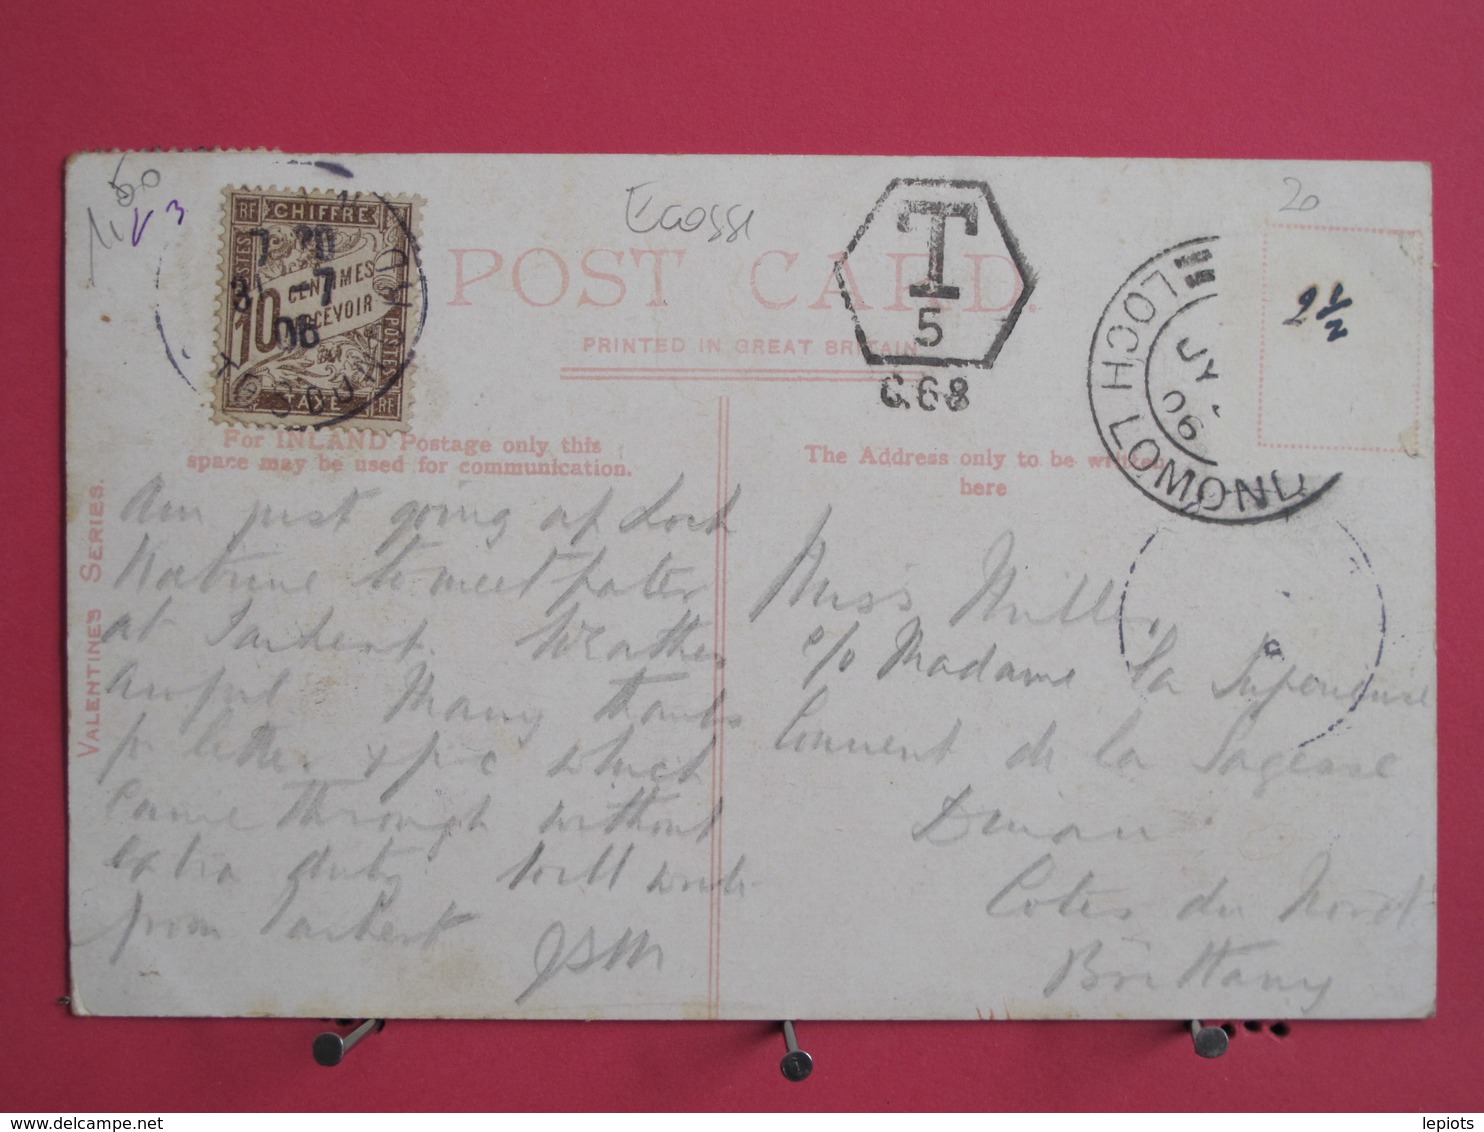 50
V 3
Ecosse
20
2 1/2
RF CHIFFRE RF
POSTES
10 CENTIMES
A PERCEVOIR
POSTES
TAXE RF
7 30
31 -7
06
T
5
C.68
LOCH LOMOND
JY
06
POST CARD.
PRINTED IN GREAT BRITAIN
For INLAND Postage only this
space may be used for communication.
The Address only to be written
here
VALENTINES SERIES.
Am just going up Loch
Katrine to meet pater
at Tarbert. Weather
awful. Many thanks
for letter & p-c which
came through without
extra duty Will write
from Tarbert JSM
Miss Miller,
c/o Madame La Superieuse
Convent de la Sagesse
Dinan
Cotes du Nord
Brittany
lepiots